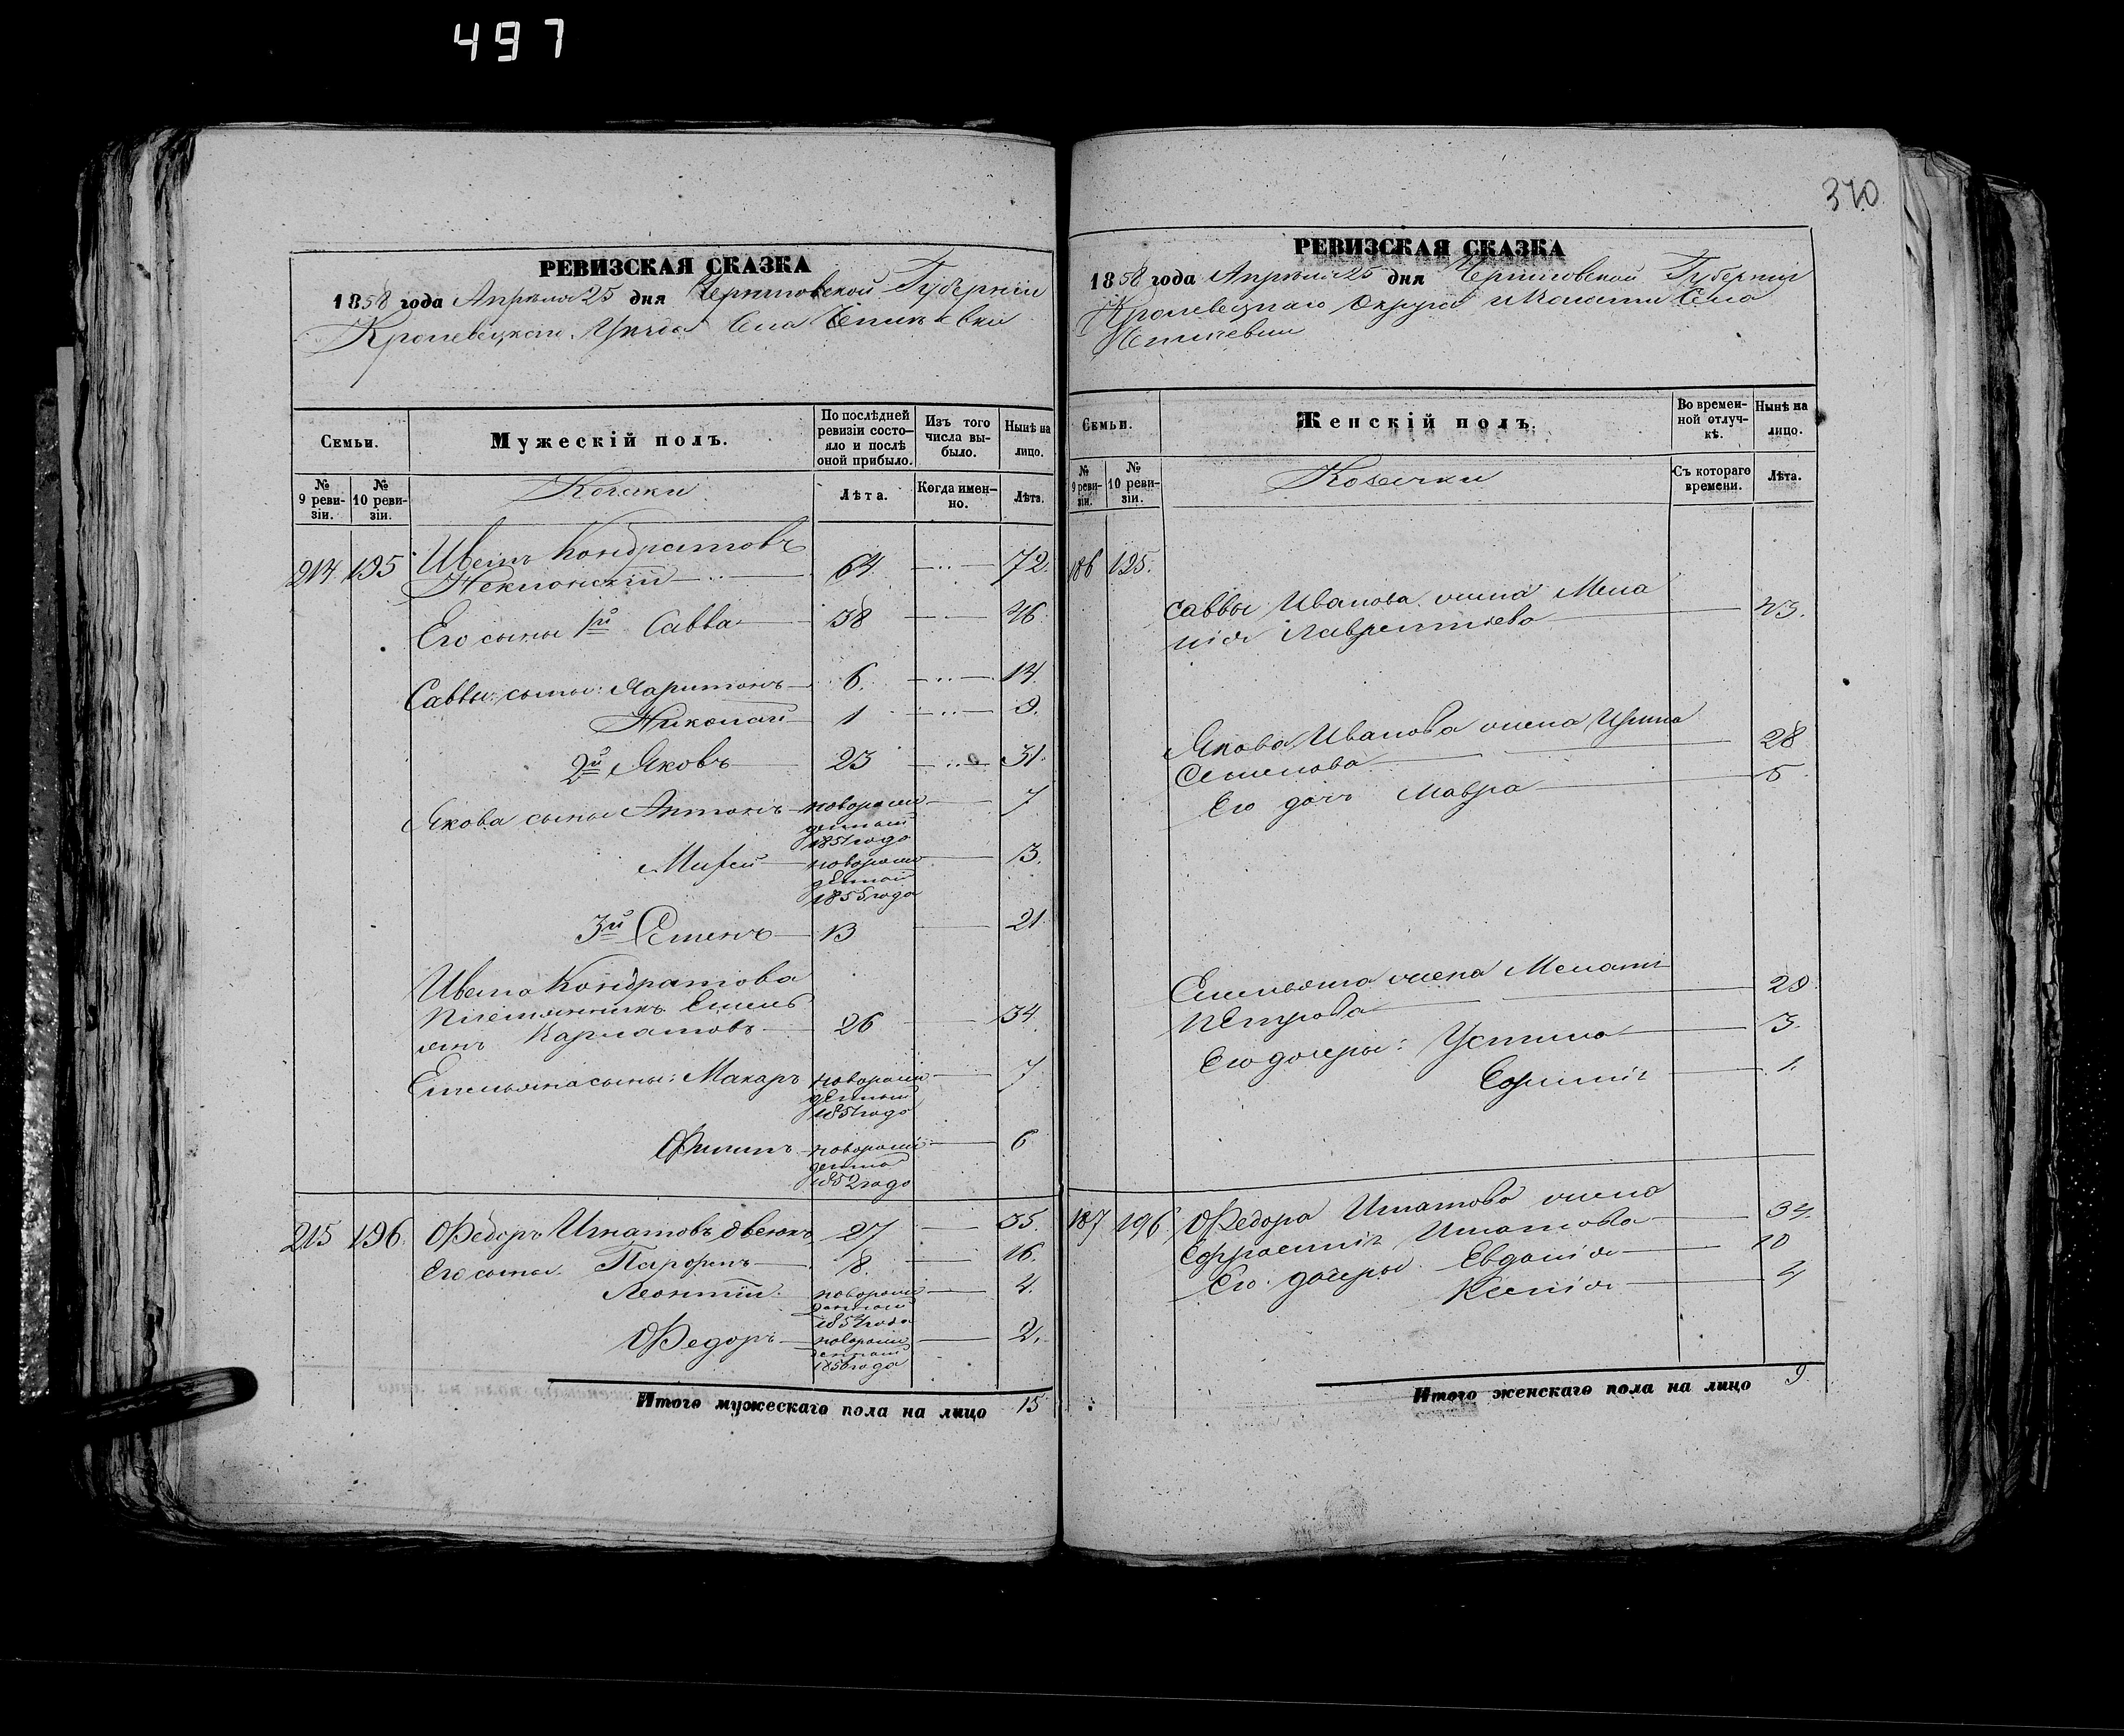 497
РЕВИЗСКАЯ СКАЗКА
1858 года Апреля 25 дня Черниговской Губернии
Кролевецкаго Уезда Села
Семьи.
Мужескій полъ.
По послѣдней ревизіи состо-
яло и послѣ
оной прибыло.
Изъ того
числа вы-
было.
Нынѣ на
лицо.
№
9 реви-
зіи.
№
10 реви-
зіи.
Козаки
Лѣта.
Когда имен-
но.
Лѣта.
214 195 Иванъ Кондратовъ
64 72.
Его сыны 1й Савва 38 46
Саввы сыны: Харитонъ 6. 14.
Николай 1 9.
2й Яковъ 23 31.
Якова сыны Антонъ новорож 7
денный
1851 года
Мифей новорож 3.
денный
1855 года
3й Семенъ 13 21.
Ивана Кондратова
племянникъ Емель
янъ 26 34.
Емельяна сыны: Макаръ новорож 7
денный
1851 года
Филипъ новорож 6
денный
1852 года
215 196. Федоръ Игнатовъ 27 35.
Его сыны Парфенъ 8. 16.
Леонтій новорож 4.
денный
1854 года
Федоръ новорож 2.
денный
1856 года
Итого мужескаго пола на лицо 15
370
РЕВИЗСКАЯ СКАЗКА
1858 года Апреля 25 дня Черниговской Губернии
Кролевецкаго Округа Села
Семьи.
Женскій полъ.
Во времен-
ной отлуч-
кѣ.
Нынѣ на
лицо.
№
9 реви-
зіи.
№
10 реви-
зіи.
Козачки
Съ котораго
времени.
Лѣта.
186 195.
Саввы Иванова жена Мела
нія Лаврентіева 43.
Якова Иванова жена Ирина
Семенова 28
Его дочь Мавра 5
Емельяна жена Меланія
Петрова 29
Его дочери: Устина 3.
Ефимія 1.
187 196 Федора Игнатова жена
Ефросинія Игнатова 34.
Его дочери Евдокія 10
Ксенія 4
Итого женскаго пола на лицо 9.